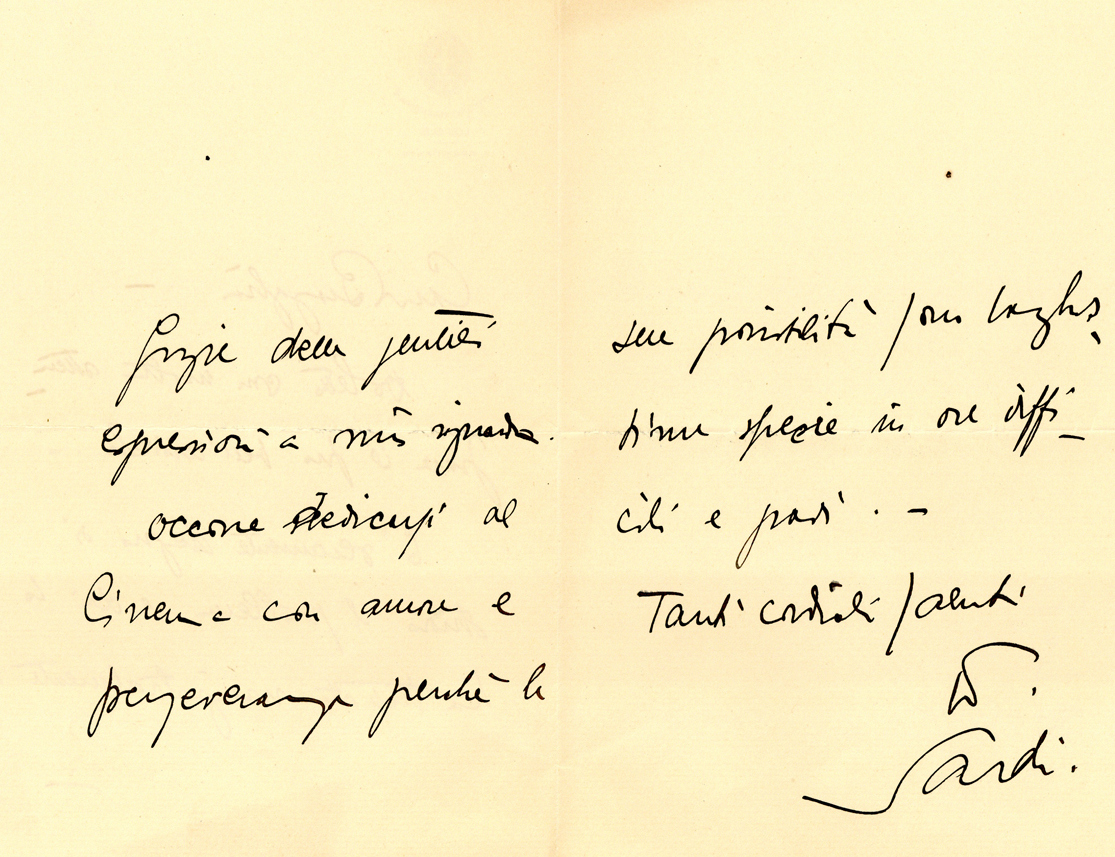 Grazie delle gentili
espressioni a mio riguardo.
occorre dedicarsi al
Cinema con amore e
perseveranza perché le
sue possibilità sono larghis
sime specie in ore diffi-
cili e gravi. -
Tanti cordiali saluti
D.
Sardi.